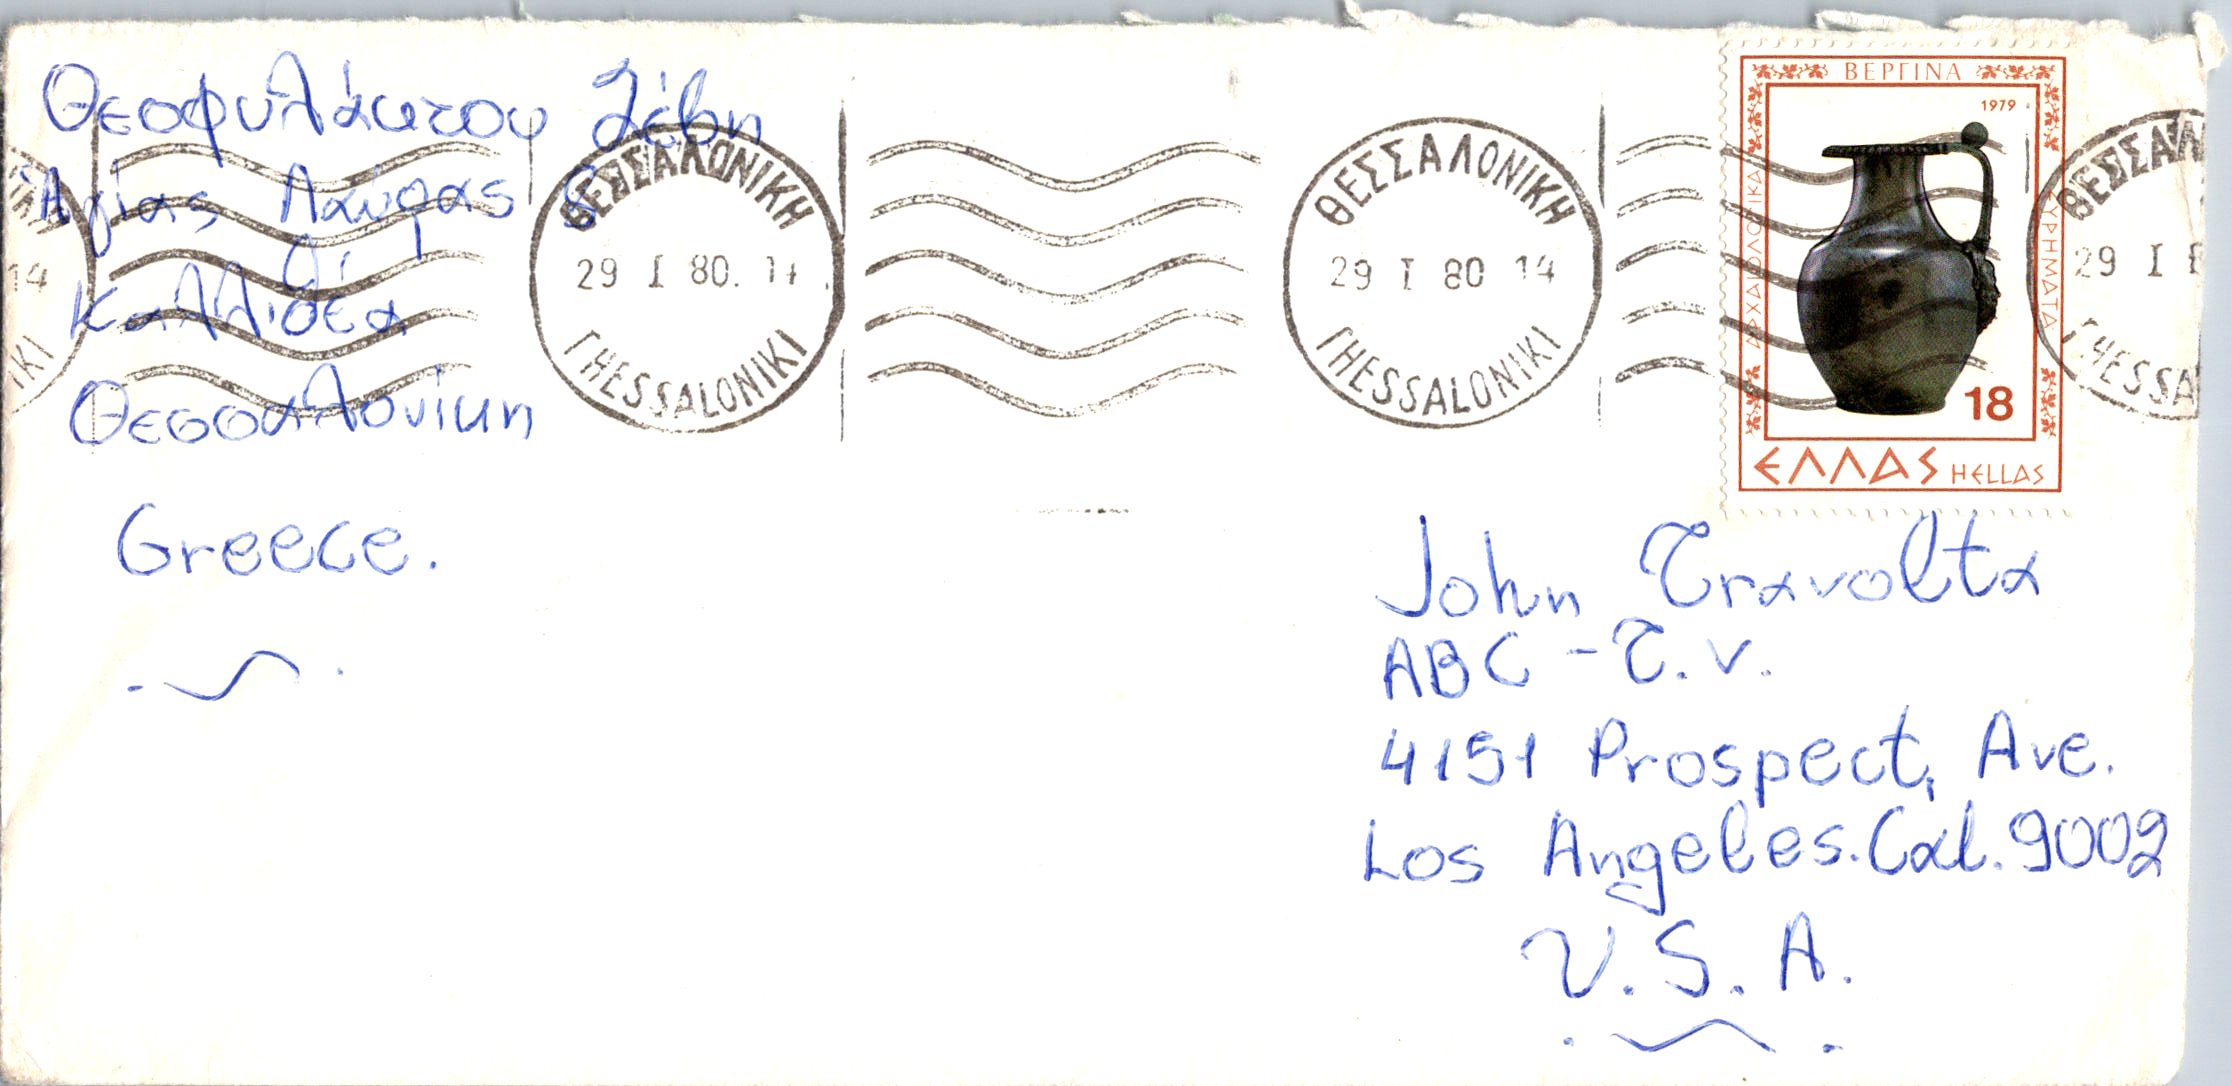 Θεοφυλάκτου Λέβη
Ἁγίας Λαύρας 8
Καλλιθέα
Θεσσαλονίκη
Greece.
ΘΕΣΣΑΛΟΝΙΚΗ
29 I 80. 14
THESSALONIKI
ΘΕΣΣΑΛΟΝΙΚΗ
29 I 80 14
THESSALONIKI
ΒΕΡΓΙΝΑ
1979
ΑΡΧΑΙΟΛΟΓΙΚΑ
ΕΥΡΗΜΑΤΑ
18
ΕΛΛΑΣ HELLAS
ΘΕΣΣΑΛ
29 I 8
THESSA
14
ΙΚΙ
John Travolta
ABC - T.V.
4151 Prospect, Ave.
Los Angeles. Cal. 9002
U.S.A.